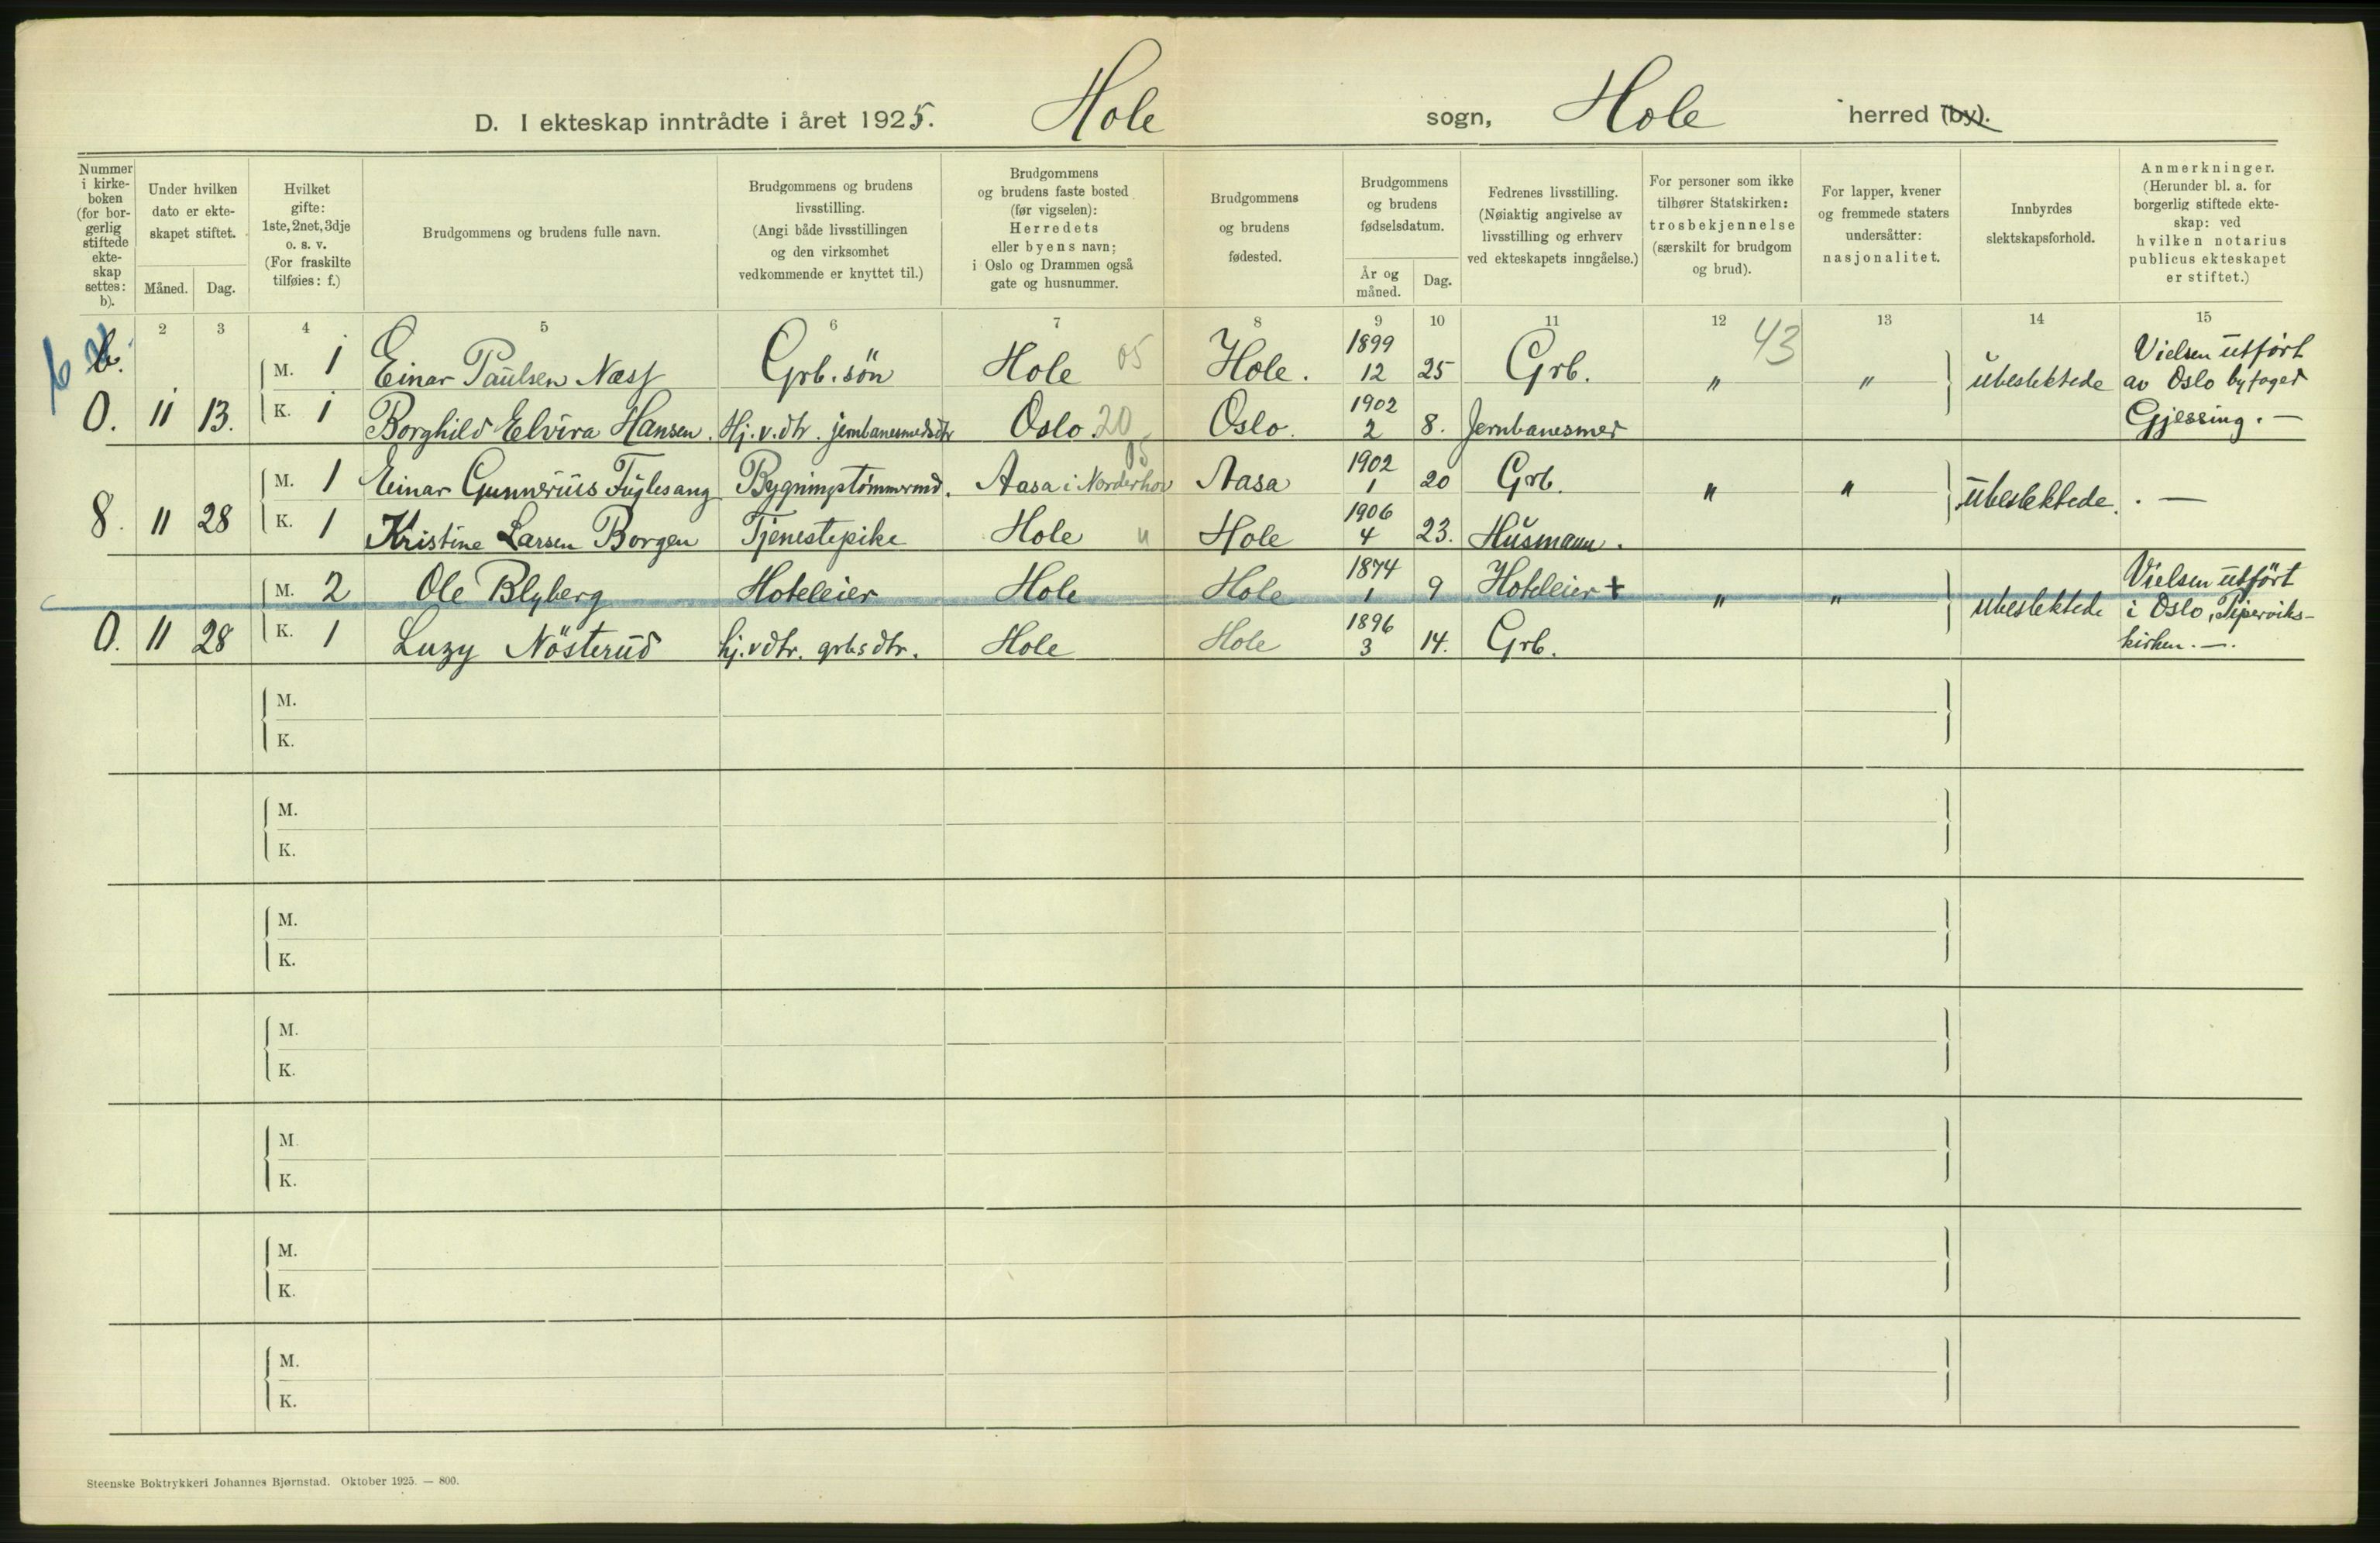 D. I ekteskap inntrådte i året 1925. Hole sogn, Hole herred (by).
Nummer i kirke- boken (for bor- gerlig stiftede ekte- skap settes: b).
Under hvilken dato er ekte- skapet stiftet.
Måned. Dag.
Hvilket gifte: 1ste, 2net, 3dje o. s. v. (For fraskilte tilføies: f.)
Brudgommens og brudens fulle navn.
Brudgommens og brudens livsstilling. (Angi både livsstillingen og den virksomhet vedkommende er knyttet til.)
Brudgommens og brudens faste bosted (før vigselen): Herredets eller byens navn; i Oslo og Drammen også gate og husnummer.
Brudgommens og brudens fødested.
Brudgommens og brudens fødselsdatum.
År og måned. Dag.
Fedrenes livsstilling. (Nøiaktig angivelse av livsstilling og erhverv ved ekteskapets inngåelse.)
For personer som ikke tilhører Statskirken: trosbekjennelse (særskilt for brudgom og brud).
For lapper, kvener og fremmede staters undersåtter: nasjonalitet.
Innbyrdes slektskapsforhold.
Anmerkninger. (Herunder bl. a. for borgerlig stiftede ekte- skap: ved hvilken notarius publicus ekteskapet er stiftet.)
2 3 4 5 6 7 8 9 10 11 12 13 14 15
b. M. 1 Einar Paulsen Næss Grb. sön Hole 05 Hole. 1899 12 25 Grb. " 43 " ubeslektede Vielsen utført av Oslo byfoged
O. 11 13. K. 1 Borghild Elvira Hansen. Hj. v. dtr. jernbanesmedsdtr Oslo. 20 Oslo. 1902 2 8. Jernbanesmed Gjessing. —
M. 1 Einar Gunnerius Fuglesang Bygningstømmermd. Aasa i Norderhov 05 Aasa 1902 1 20 Grb. " " ubeslektede. . —
8. 11 28 K. 1 Kristine Larsen Borgen Tjenestepike Hole " Hole 1906 4 23. Husmann.
M. 2 Ole Blyberg Hoteleier Hole Hole 1874 1 9 Hoteleier + " " ubeslektede Vielsen utfört i Oslo, Piperviks-
O. 11 28 K. 1 Luzy Nösterud hj. v dtr. grbs dtr. Hole Hole 1896 3 14. Grb. kirken. —.
M.
K.
M.
K.
M.
K.
M.
K.
M.
K.
M.
K.
M.
K.
Steenske Boktrykkeri Johannes Bjørnstad. Oktober 1925. — 800.